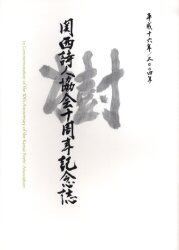 平成十六年・二〇〇四年
樹
関西詩人協会十周年記念誌
In Commemoration of the 10th Anniversary of the Kansai Poets' Association